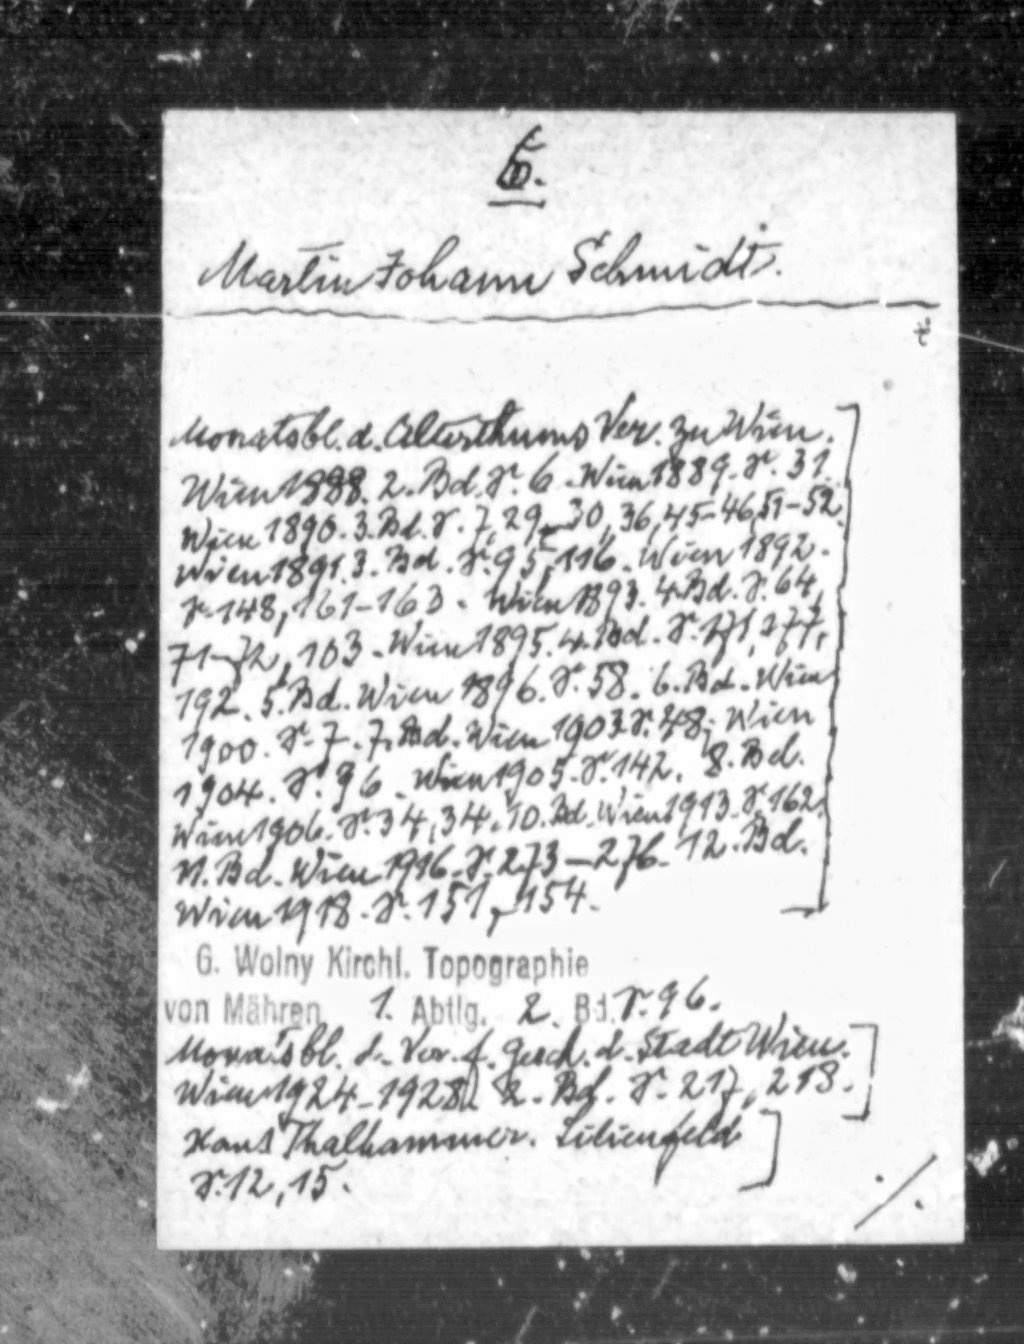 6.
Martin Johann Schmidt.
Monatsbl. d. Alterthums Ver. zu Wien.
Wien 1888. 2. Bd. S. 6. Wien 1889. S. 31.
Wien 1890. 3. Bd. S. 7, 29, 30, 36, 45-46, 51-52.
Wien 1891. 3. Bd. S. 95, 116. Wien 1892.
S. 148, 161-163. Wien 1893. 4. Bd. S. 64,
71-72, 103. Wien 1895. 4. Bd. S. 171, 177,
192. 5. Bd. Wien 1896. S. 58. 6. Bd. Wien
1900. S. 7. 7. Bd. Wien 1903. S. 48; Wien
1904. S. 96. Wien 1905. S. 142. 8. Bd.
Wien 1906. S. 34, 34. 10. Bd. Wien 1913. S. 162.
11. Bd. Wien 1916. S. 273-276. 12. Bd.
Wien 1918. S. 151, 154.
G. Wolny Kirchl. Topographie
von Mähren 1. Abtlg. 2. Bd. S. 96.
Monatsbl. d. Ver. f. Gesch. d. Stadt Wien.
Wien 1924-1928. 2. Bd. S. 217, 218.
Hans Thalhammer. Lilienfeld
S. 12, 15.